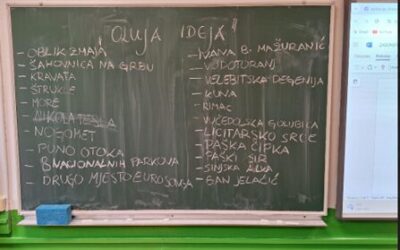 OLUJA IDEJA
- OBLIK ZMAJA
- ŠAHOVNICA NA GRBU
- KRAVATA
- ŠTRUKLE
- MORE
- NIKOLA TESLA
- NOGOMET
- PUNO OTOKA
- 8 NACIONALNIH PARKOVA
- DRUGO MJESTO EUROSONGA
- IVANA B. MAŽURANIĆ
- VELEBITSKA DEGENIJA
- KUNA
- RIMAC
- VUČEDOLSKA GOLUBICA
- LICITARSKO SRCE
- PAŠKA ČIPKA
- PAŠKI SIR
- SINJSKA ALKA
- BAN JELAČIĆ